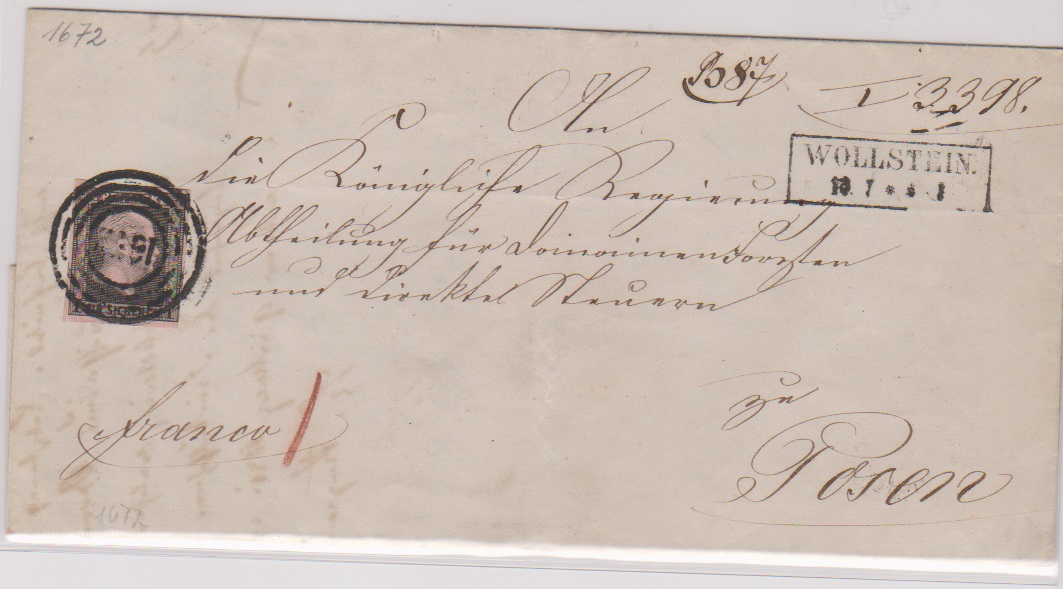 1672
B 87
I 3398.
An
die Königliche Regierung
Abtheilung für Domainen Forsten
und direkte Steuern
WOLLSTEIN.
franco
zu
Posen
1672